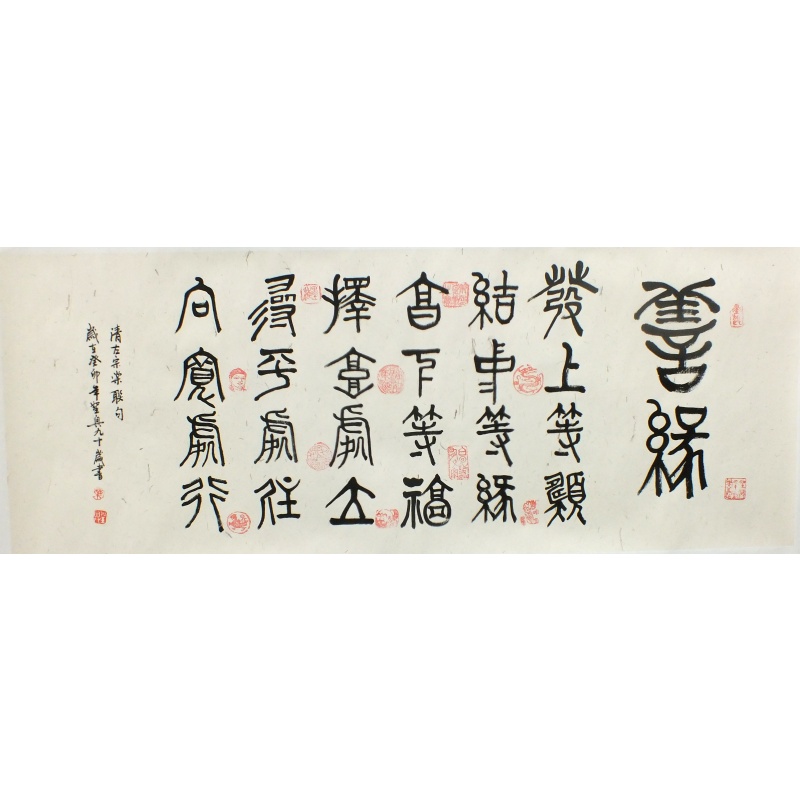 善緣
發上等願
結中等緣
享下等福
擇高處立
尋平處住
向寬處行
清左宗棠联句
歲在癸卯年九十歲書